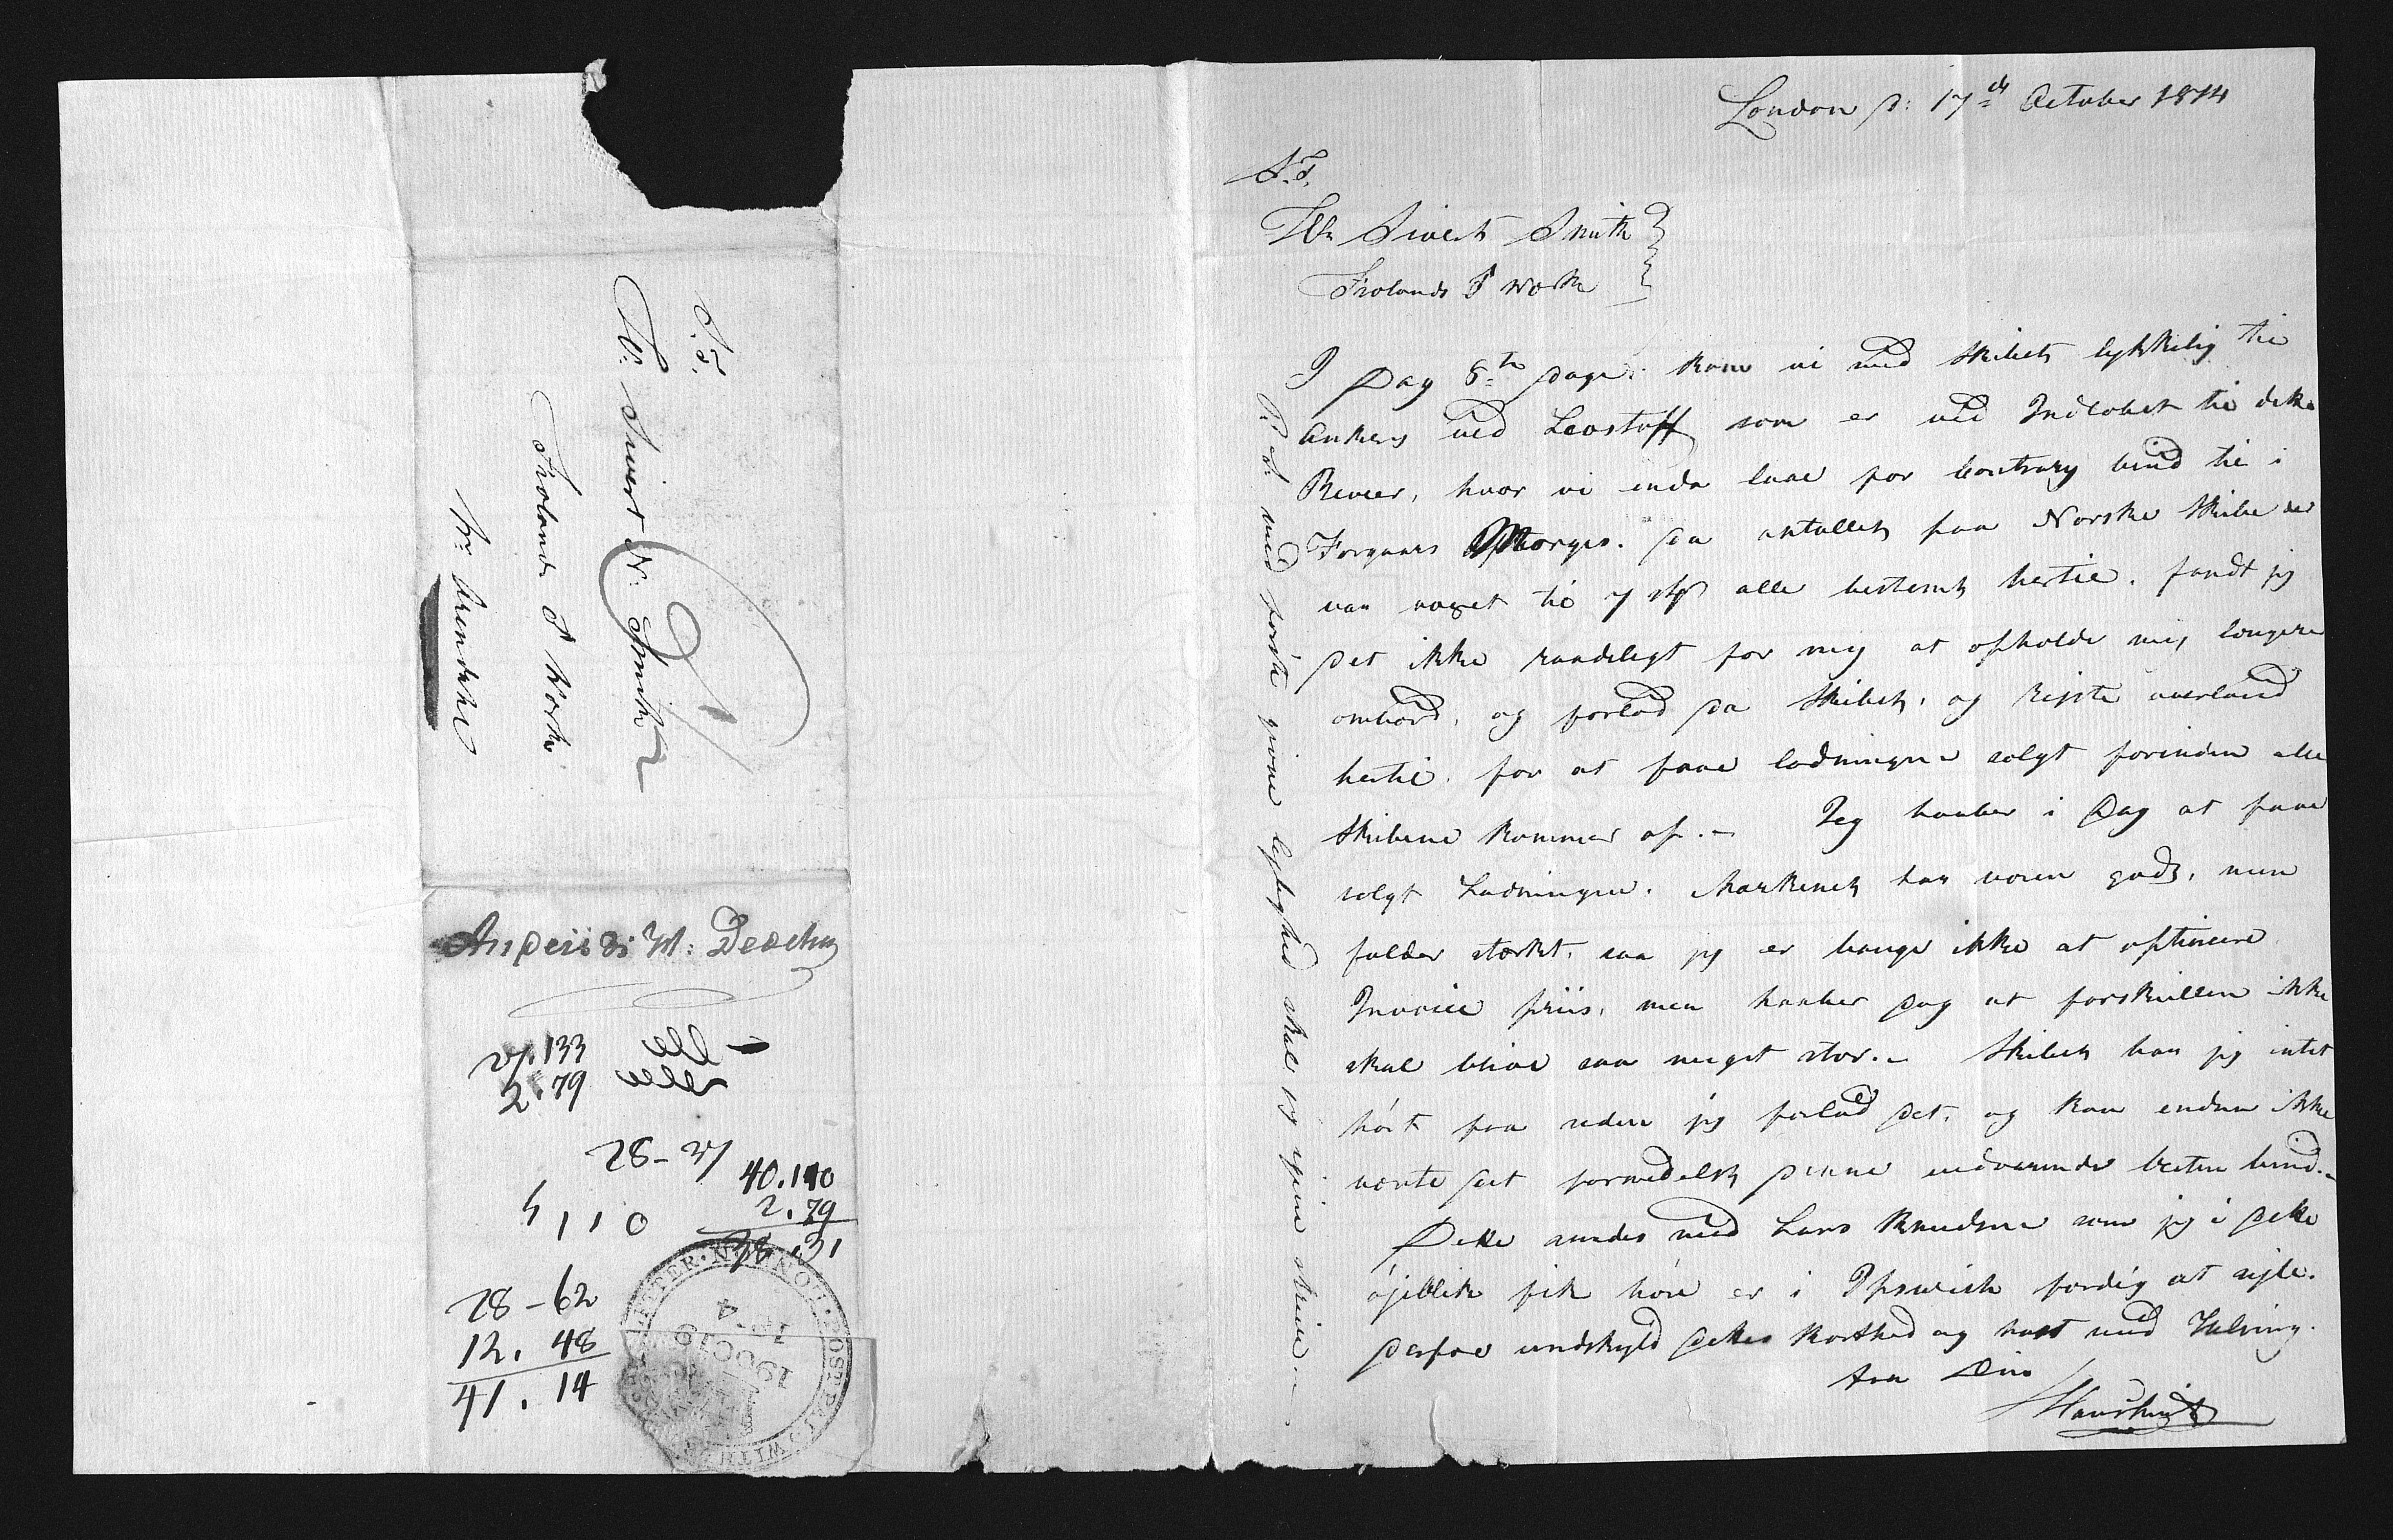 London d: 17de October 1814
S.T.
Hr Sivert Smith
Frolands J Werk
I Dag 8te Dage. kom vi med Skibet lykkelig til
Ankers ved Leostoff som er ved Indlobet til dette
Reveer, hvor vi enda laae for contrary vind til i
Forgaars Morges. da antallet paa Norske Skibe der
var voxet til 7 stk alle bestemt hertil. fandt jeg
det ikke raadeligt for mig at opholde mig længere
ombord, og forlod da Skibet, og rejste overland
hertil. for at faae ladningen solgt forinden alle
Skibene kommer op. – Jeg haaber i Dag at faae
solgt Ladningen. Markenet har været godt, men
falder stærkt, saa jeg er bange ikke at optinere
Invoice priis, men haaber dog at forskiellen ikke
skal blive saa meget stor. – Skibet har jeg intet
hørt fra siden jeg forlod det, og kan endnu ikke
vente det formedelst denne vedvarende vesten vind. –
Dette sendes med Lars Knudsen som jeg i dette
øjeblik fik høre er i Ipswich færdig at sejle.
derfor undskyld dettes korthed og hast med Hilsing.
fra Din
HansSmith
P.S. med første givne lejlighed skal jeg igien skrive. –
S.T.
Hr: Sivert N: Smith
Frolands J Werk
pr: Arendahl
40.110
2.79
38.31
28–62
12.48
41.14
v/.133
2.79
28–
4 1 1 0
POST PAID WITHD
LETTER
19 OC 19
1814